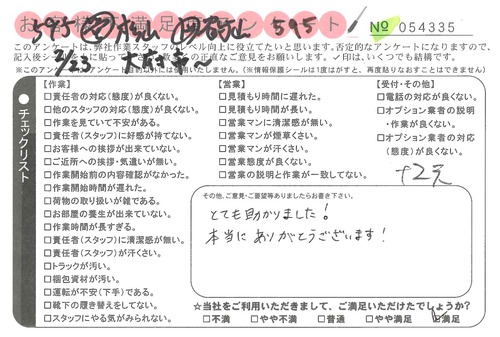 お 満足 ント № 054335
595 595
2/23
このアンケートは、弊社作業スタッフのレベル向上に役立てたいと思います。否定的なアンケートになりますので、
記入後シールに貼って
数々の正直なご意見をお願いします。✓印は、いくつでも結構です。
(※情報保護シールは1度はがすと、再度貼りなおすことはできません)
チェックリスト
【作業】
□責任者の対応(態度)が良くない。
□他のスタッフの対応(態度)が良くない。
□作業を見ていて不安がある。
□責任者(スタッフ)に好感が持てない。
□お客様への挨拶が出来ていない。
□ご近所への挨拶・気遣いが無い。
□作業開始前の内容確認がなかった。
□作業開始時間が遅れた。
□荷物の取り扱いが雑である。
□お部屋の養生が出来ていない。
□作業時間が長すぎる。
□責任者(スタッフ)に清潔感が無い。
□責任者(スタッフ)が汗くさい。
□トラックが汚い。
□梱包資材が汚い。
□運転が不安(下手)である。
□靴下の履き替えをしてない。
□スタッフにやる気がみられない。
【営業】
□見積もり時間に遅れた。
□見積もり時間が長い。
□営業マンに清潔感が無い。
□営業マンが煙草くさい。
□営業マンが汗くさい。
□営業態度が良くない。
□営業の説明と作業が一致してない。
【受付・その他】
□電話の対応が良くない。
□オプション業者の説明
・作業が良くない。
□オプション業者の対応
(態度)が良くない。
その他、ご意見・ご要望等ありましたらお書き下さい。
とても助かりました!
本当にありがとうございます!
☆当社をご利用いただきまして、ご満足いただけたでしょうか?
□不満 □やや不満 □普通 □やや満足 ☑満足